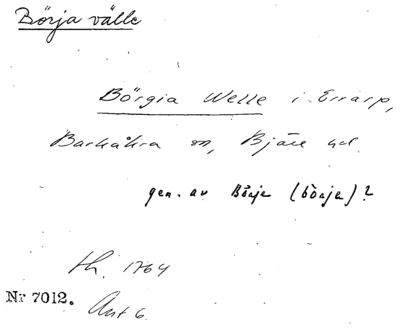 Börja välle
Börgia Welle i Errarp,
Barkåkra sn, Bjäre hd.
gen. av Börje (börje)?
th. 1764
Nr 7012. Ant 6.